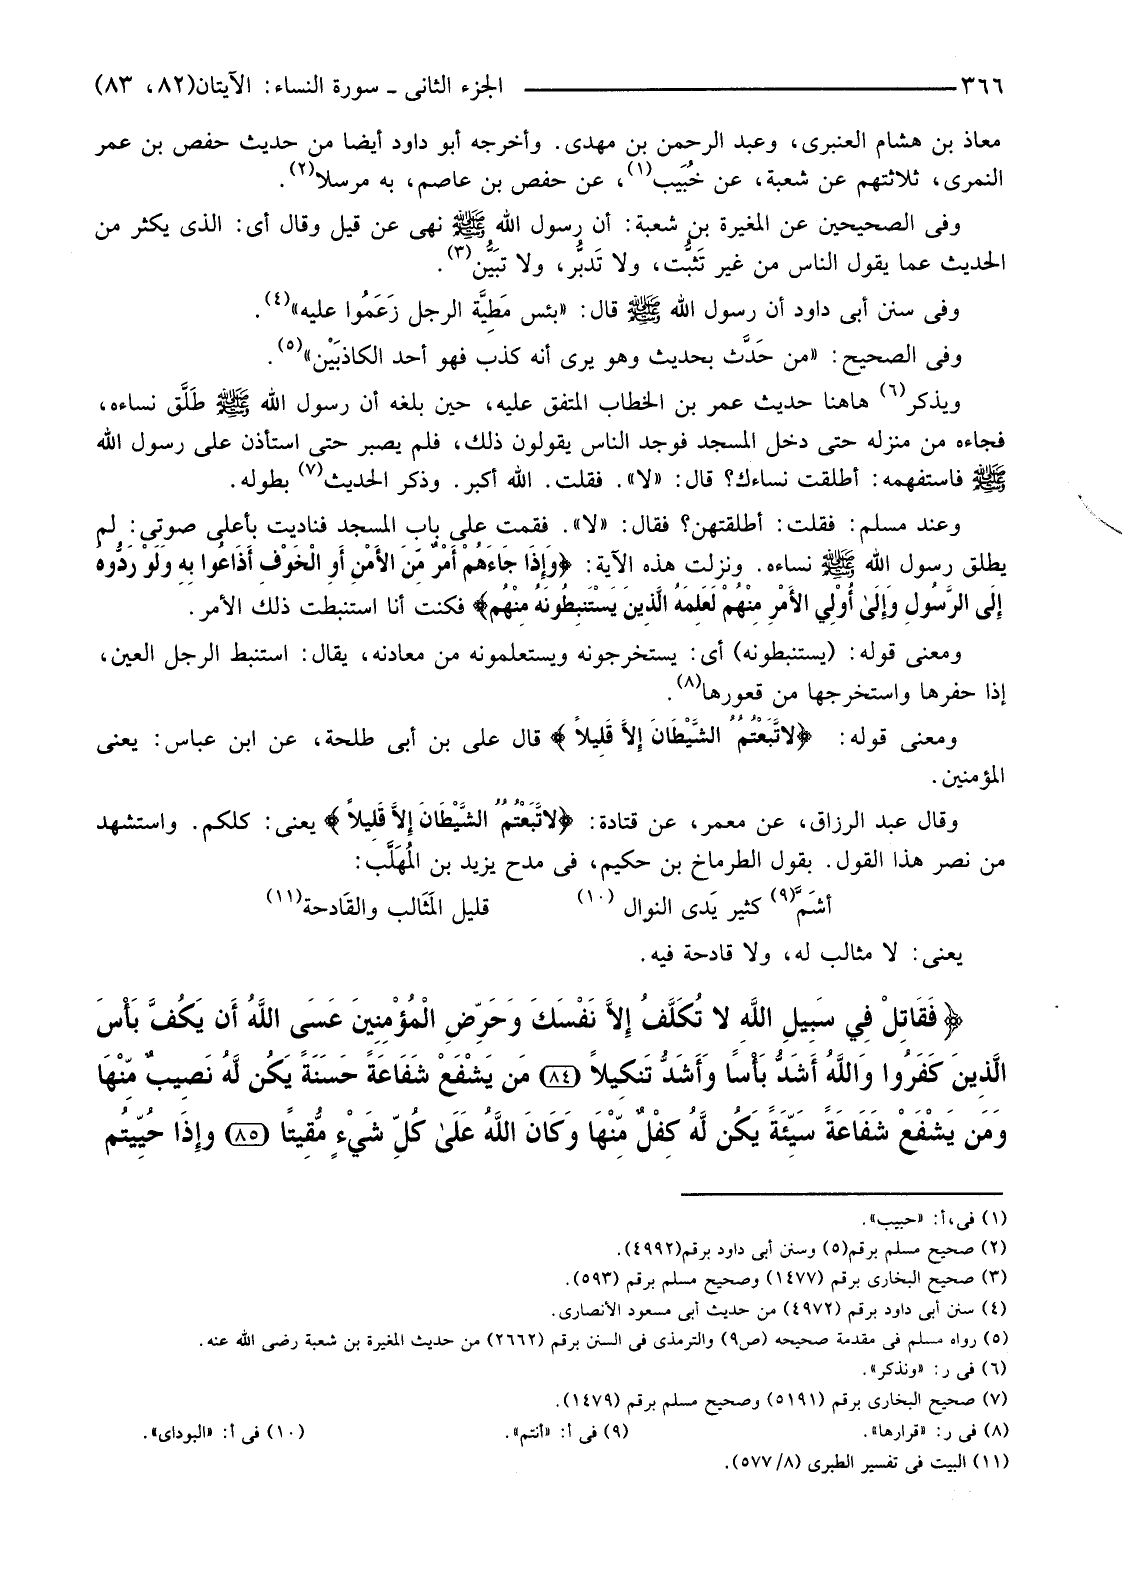 ٣٦٦ الجزء الثانى ـ سورة النساء: الآيتان(٨٢، ٨٣)
معاذ بن هشام العنبرى، وعبد الرحمن بن مهدى. وأخرجه أبو داود أيضا من حديث حفص بن عمر
النمرى، ثلاثتهم عن شعبة، عن خُبَيب(١)، عن حفص بن عاصم، به مرسلا(٢).
وفى الصحيحين عن المغيرة بن شعبة: أن رسول الله ﷺ نهى عن قيل وقال أى: الذى يكثر من
الحديث عما يقول الناس من غير تَثبُّت، ولا تَدبُّر، ولا تبَيُّن(٣).
وفى سنن أبى داود أن رسول الله ﷺ قال: «بئس مَطِيَّة الرجل زَعَمُوا عليه»(٤).
وفى الصحيح: «من حَدَّث بحديث وهو يرى أنه كذب فهو أحد الكاذبَيْن»(٥).
ويذكر(٦) هاهنا حديث عمر بن الخطاب المتفق عليه، حين بلغه أن رسول الله ﷺ طَلَّق نساءه،
فجاءه من منزله حتى دخل المسجد فوجد الناس يقولون ذلك، فلم يصبر حتى استأذن على رسول الله
ﷺ فاستفهمه: أطلقت نساءك؟ قال: «لا». فقلت. الله أكبر. وذكر الحديث(٧) بطوله.
وعند مسلم: فقلت: أطلقتهن؟ فقال: «لا». فقمت على باب المسجد فناديت بأعلى صوتى: لم
يطلق رسول الله ﷺ نساءه. ونزلت هذه الآية: ﴿وَإِذَا جَاءَهُمْ أَمْرٌ مِّنَ الأَمْنِ أَوِ الْخَوْفِ أَذَاعُوا بِهِ وَلَوْ رَدُّوهُ
إِلَى الرَّسُولِ وَإِلَىٰ أُوْلِي الأَمْرِ مِنْهُمْ لَعَلِمَهُ الَّذِينَ يَسْتَنبِطُونَهُ مِنْهُم﴾ فكنت أنا استنبطت ذلك الأمر.
ومعنى قوله: (يستنبطونه) أى: يستخرجونه ويستعلمونه من معادنه، يقال: استنبط الرجل العين،
إذا حفرها واستخرجها من قعورها(٨).
ومعنى قوله: ﴿لاتَّبَعْتُمُ الشَّيْطَانَ إِلاَّ قَلِيلاً﴾ قال على بن أبى طلحة، عن ابن عباس: يعنى
المؤمنين.
وقال عبد الرزاق، عن معمر، عن قتادة: ﴿لاتَّبَعْتُمُ الشَّيْطَانَ إِلاَّ قَلِيلاً﴾ يعنى: كلكم. واستشهد
من نصر هذا القول. بقول الطرماخ بن حكيم، فى مدح يزيد بن المُهَلَّب:
أشَمَّ(٩) كثير يَدى النوال (١٠) قليل المَثَالب والقَادحة(١١)
يعنى: لا مثالب له، ولا قادحة فيه.
﴿فَقَاتِلْ فِي سَبِيلِ اللَّهِ لا تُكَلَّفُ إِلاَّ نَفْسَكَ وَحَرِّضِ الْمُؤْمِنِينَ عَسَى اللَّهُ أَن يَكُفَّ بَأْسَ
الَّذِينَ كَفَرُوا وَاللَّهُ أَشَدُّ بَأْسًا وَأَشَدُّ تَنكِيلاً (٨٤) مَن يَشْفَعْ شَفَاعَةً حَسَنَةً يَكُن لَّهُ نَصِيبٌ مِّنْهَا
وَمَن يَشْفَعْ شَفَاعَةً سَيِّئَةً يَكُن لَّهُ كِفْلٌ مِّنْهَا وَكَانَ اللَّهُ عَلَىٰ كُلِّ شَيْءٍ مُّقِيتًا (٨٥) وَإِذَا حُيِّيتُم
(١) فى، أ: «حبيب».
(٢) صحيح مسلم برقم(٥) وسنن أبى داود برقم(٤٩٩٢).
(٣) صحيح البخارى برقم (١٤٧٧) وصحيح مسلم برقم (٥٩٣).
(٤) سنن أبى داود برقم (٤٩٧٢) من حديث أبى مسعود الأنصارى.
(٥) رواه مسلم فى مقدمة صحيحه (ص٩) والترمذى فى السنن برقم (٢٦٦٢) من حديث المغيرة بن شعبة رضى الله عنه.
(٦) فى ر: «ونذكر».
(٧) صحيح البخارى برقم (٥١٩١) وصحيح مسلم برقم (١٤٧٩).
(٨) فى ر: «قرارها». (٩) فى أ: «أنتم». (١٠) فى أ: «البوداى».
(١١) البيت فى تفسير الطبرى (٨/ ٥٧٧).